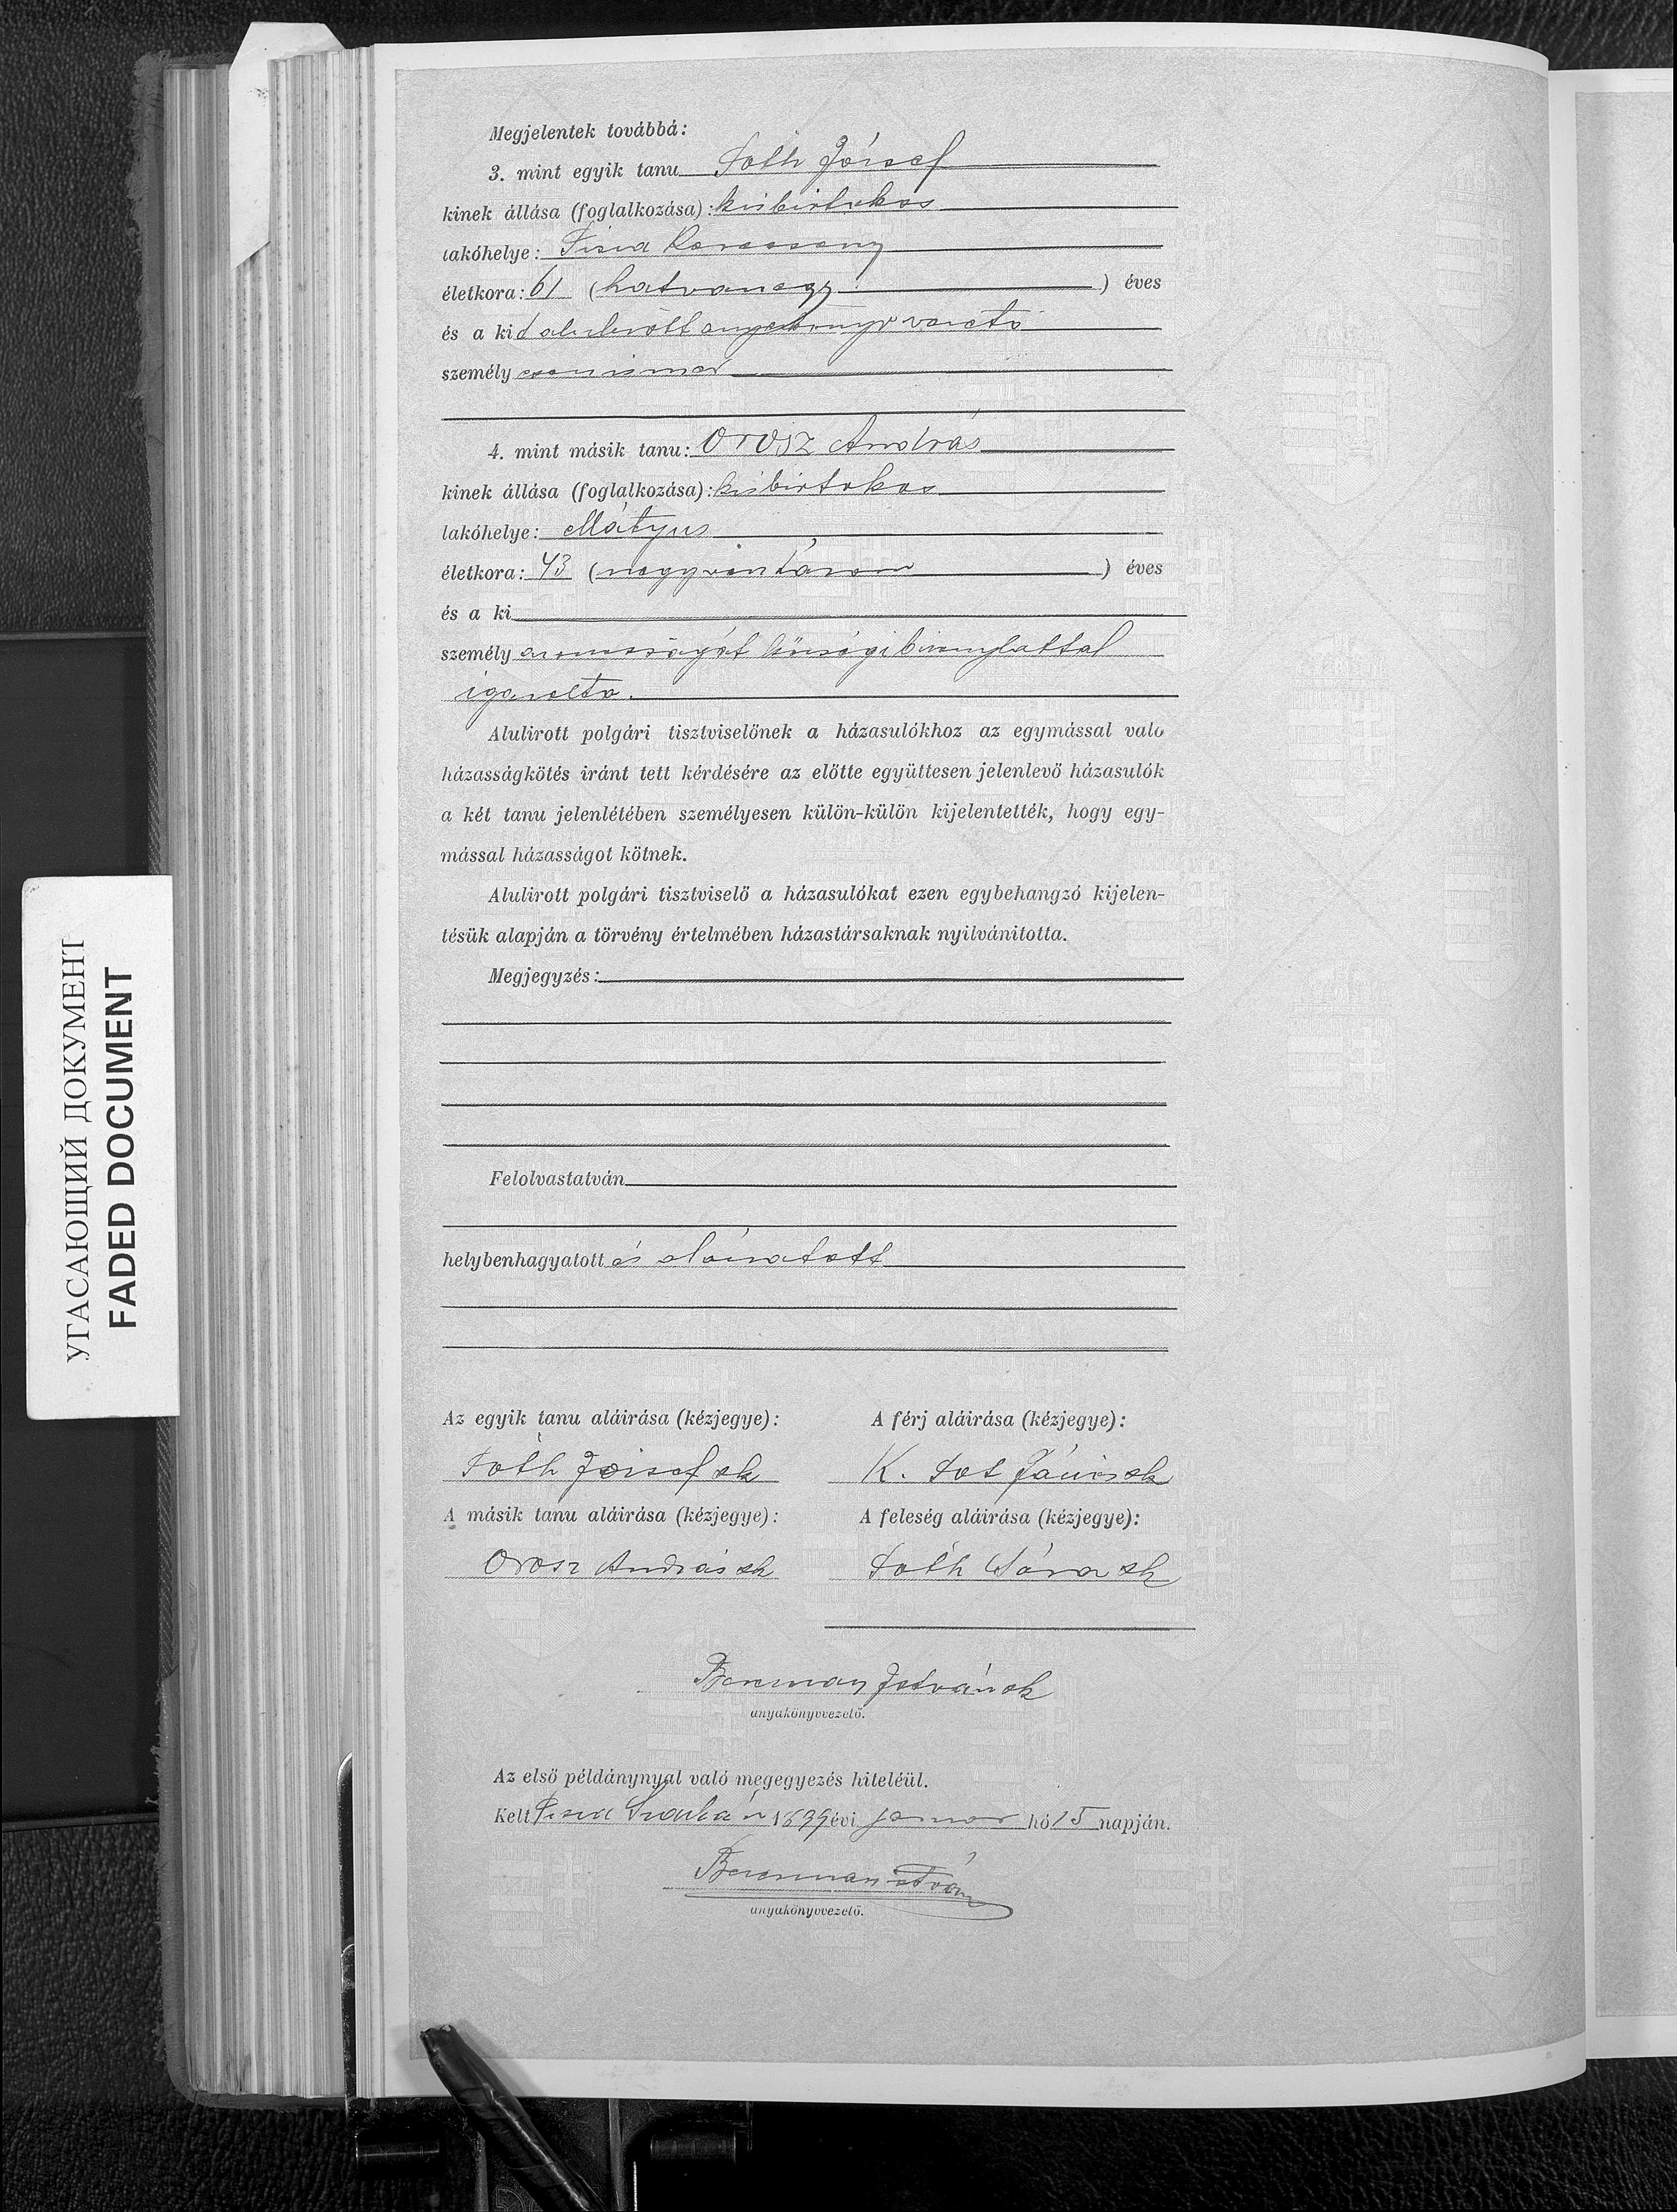 Megjelentek továbbá:
3. mint egyik tanu Tóth József
kinek állása (foglalkozása): kisbirtokos
lakóhelye: Tisza Karacsony
életkora: 61 (hatvanegy) éves
és a kit alulirott anyakönyvvezető
személyesen ismer
4. mint másik tanu: Orosz András
kinek állása (foglalkozása): kisbirtokos
lakóhelye: Mátyus
életkora: 43 (negyvenhárom) éves
és a ki
személyazonosságát községi bizonylattal
igazolta.
Alulirott polgári tisztviselőnek a házasulókhoz az egymással való
házasságkötés iránt tett kérdésére az előtte együttesen jelenlevő házasulók
a két tanu jelenlétében személyesen külön-külön kijelentették, hogy egy-
mással házasságot kötnek.
Alulirott polgári tisztviselő a házasulókat ezen egybehangzó kijelen-
tésük alapján a törvény értelmében házastársaknak nyilvánitotta.
Megjegyzés:
Felolvastatván
helybenhagyatott és aláiratott
Az egyik tanu aláirása (kézjegye): A férj aláirása (kézjegye):
Tóth József sk K. Tot János sk
A másik tanu aláirása (kézjegye): A feleség aláirása (kézjegye):
Orosz András sk Tóth Sára sk
István sk
anyakönyvvezető.
Az első példánynyal való megegyezés hiteléül.
Kelt Tisza 1899 évi januar hó 15 napján.
István
anyakönyvvezető.
УГАСАЮЩИЙ ДОКУМЕНТ
FADED DOCUMENT